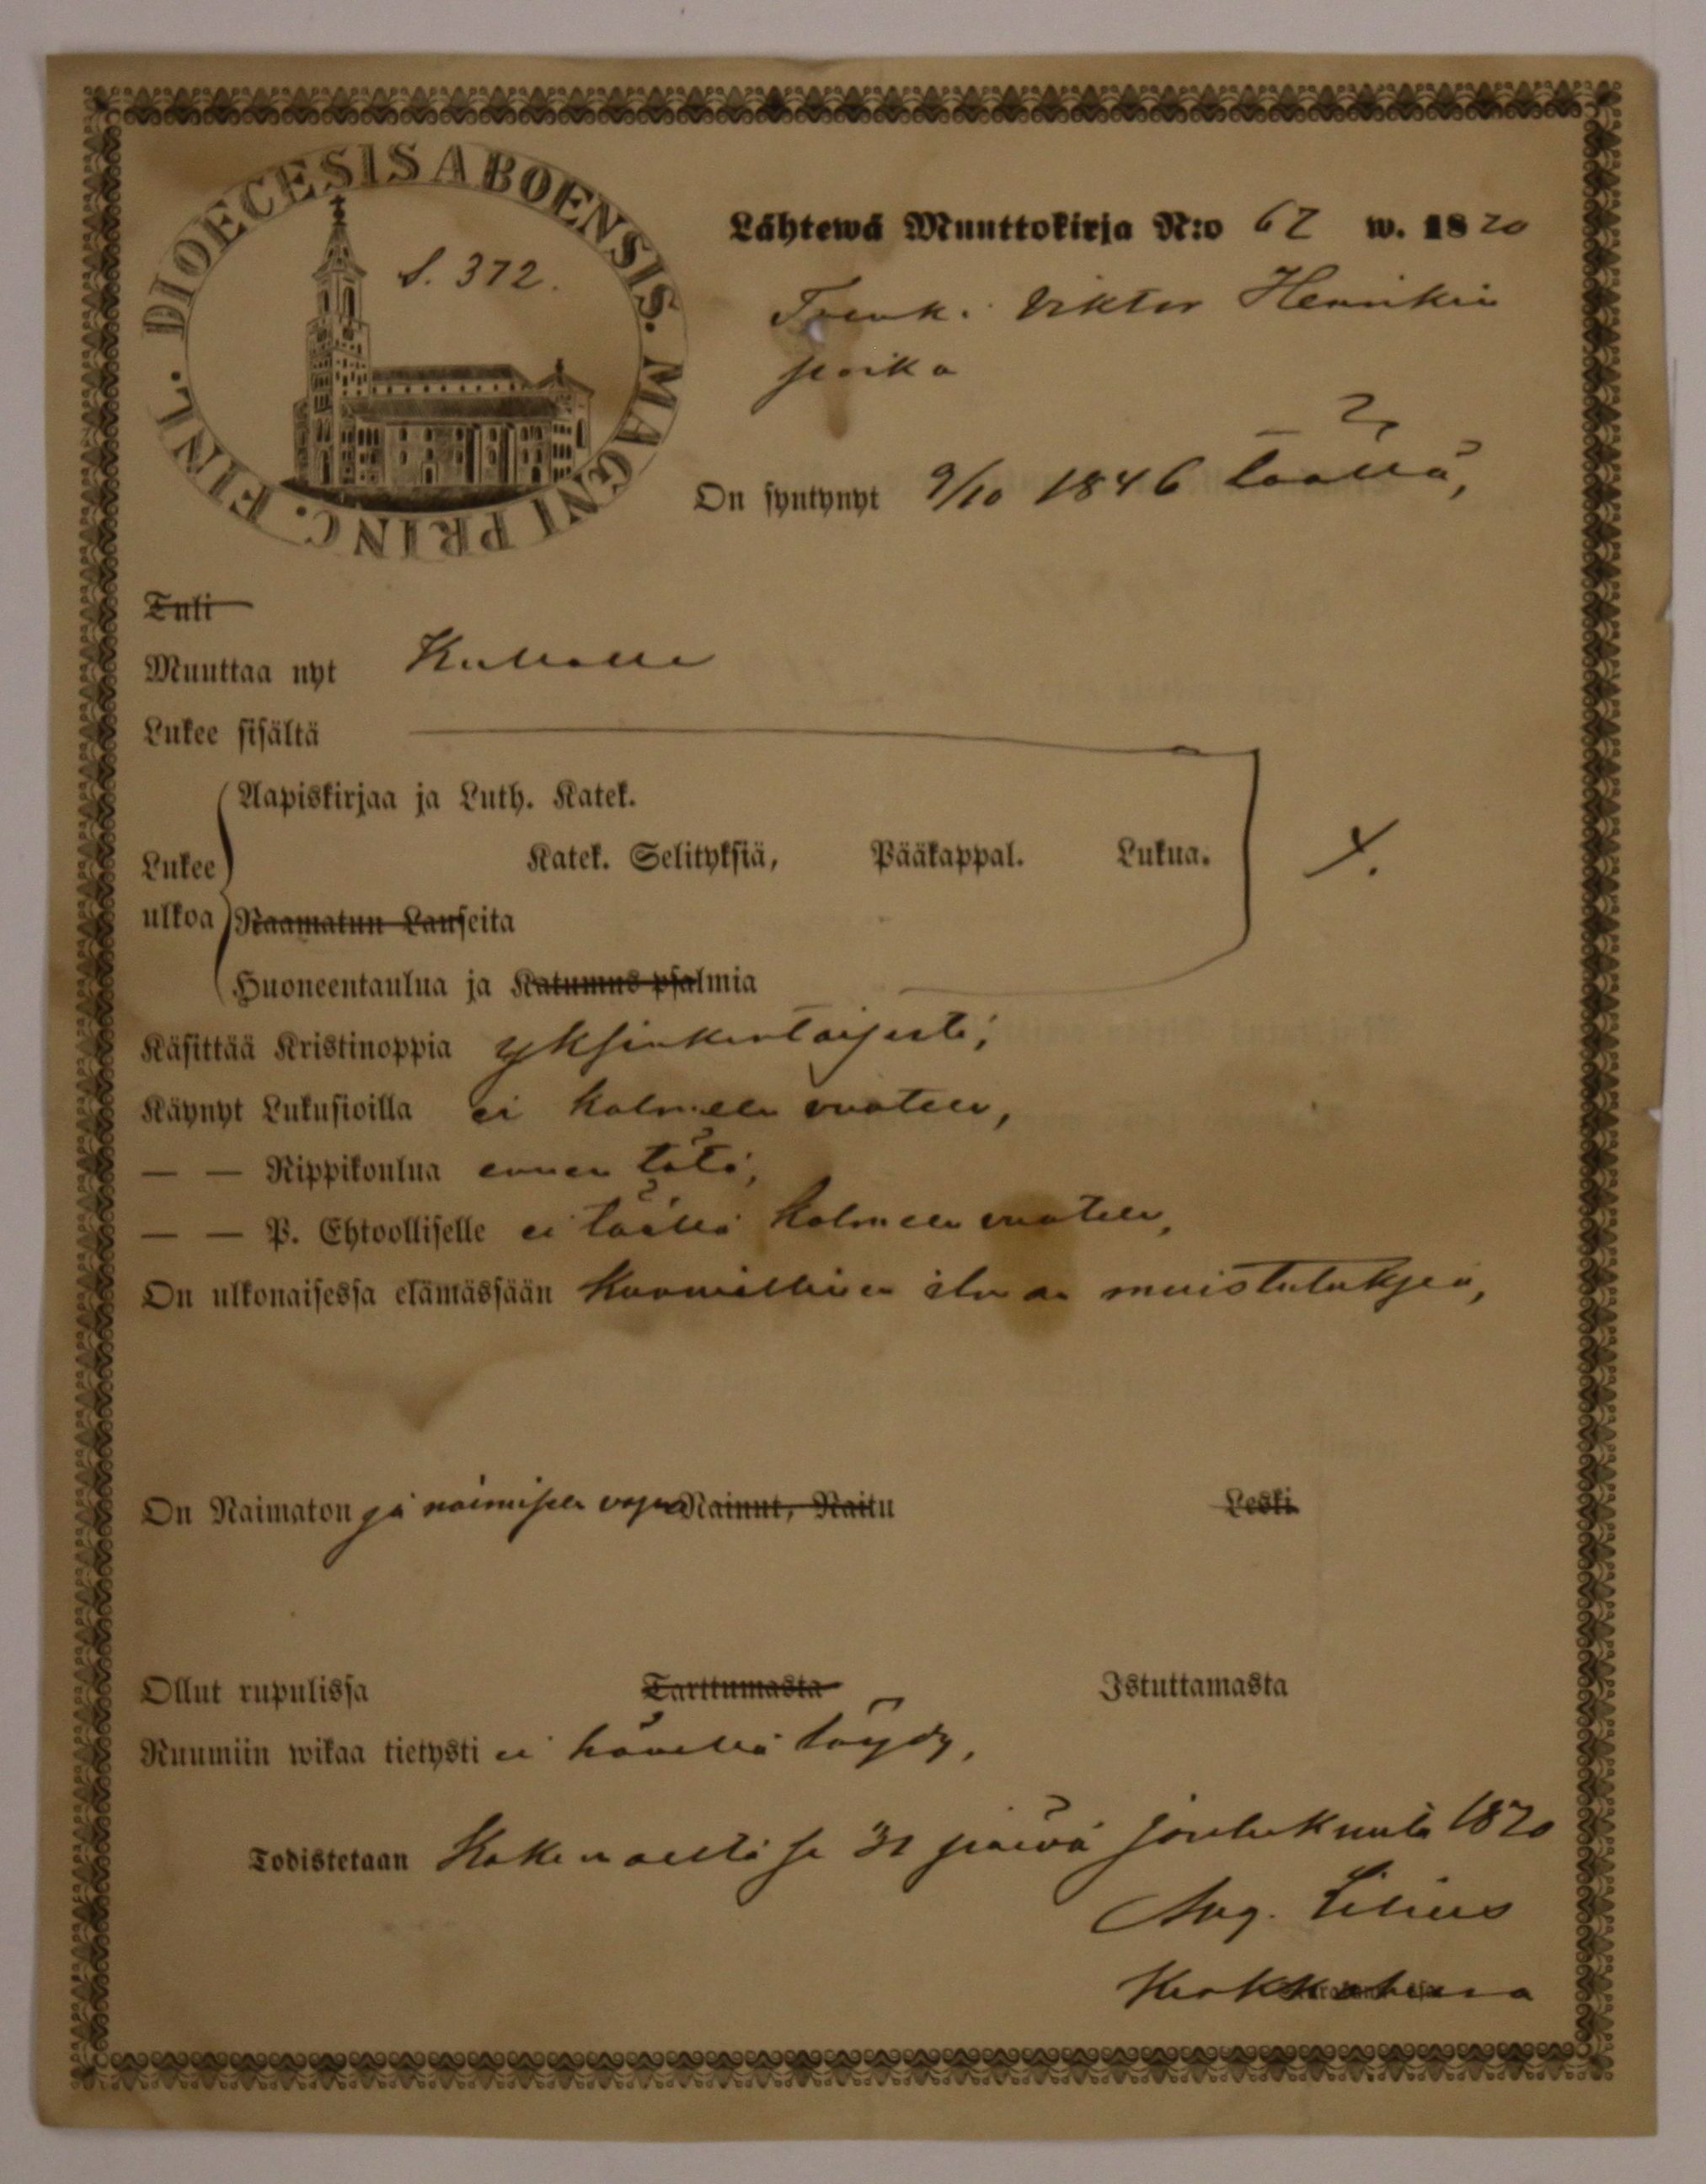 DIOECESIS ABOENSIS. MAGNI PRINC. FINL.
S. 372.
Lähtewä Muuttokirja N:o 62 w. 1870
Trenk. Viktor Henrikin
poika
On syntynyt 9/10 1846 täällä,
Tuli
Muuttaa nyt
Lukee sisältä
Aapiskirjaa ja Luth. Katek.
Lukee
Katek. Selityksiä, Pääkappal. Lukua.
ulkoa
Raamatun Lauseita
Huoneentaulua ja Katumus psalmia
Käsittää Kristinoppia yksinkertaisesti;
Käynyt Lukusioilla ei kolmeen vuoteen,
— — Rippikoulua ennen tätä,
— — P. Ehtoolliselle ei täällä kolmeen vuoteen,
On ulkonaisessa elämässään kunniallinen ilman muistutuksia,
On Naimaton ja naimiseen vapaa Nainut, Naitu Leski
Ollut rupulissa Tarttumasta Istuttamasta
Ruumiin wikaa tietysti ei hänellä löydy,
Todistetaan Kokemäellä se 31 päivä joulukuuta 1870
Aug. Lilius
Kirkkoherra